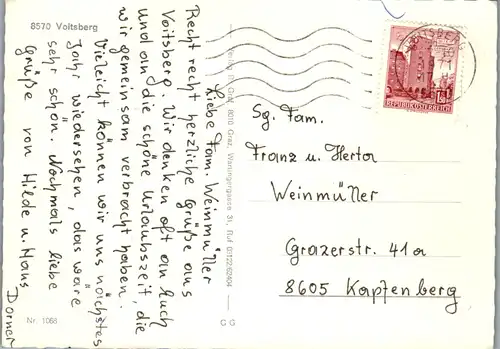 8570 Voitsberg
Liebe Fam. Weinmüller
Recht recht herzliche Grüße aus
Voitsberg. Wir denken oft an Euch
und an die schöne Urlaubszeit, die
wir gemeinsam verbracht haben.
Vielleicht können wir uns nächstes
Jahr wiedersehen, das wäre
sehr schön. Nochmals liebe
Grüße von Hilde u. Hans
Dorner
Nr. 1068
Graz, 8010 Graz, Waringergasse 31, Ruf 03122/62404
G G
VOITSBERG
REPUBLIK ÖSTERREICH
Sg. Fam.
Franz u. Herta
Weinmüller
Grazerstr. 41a
8605 Kapfenberg